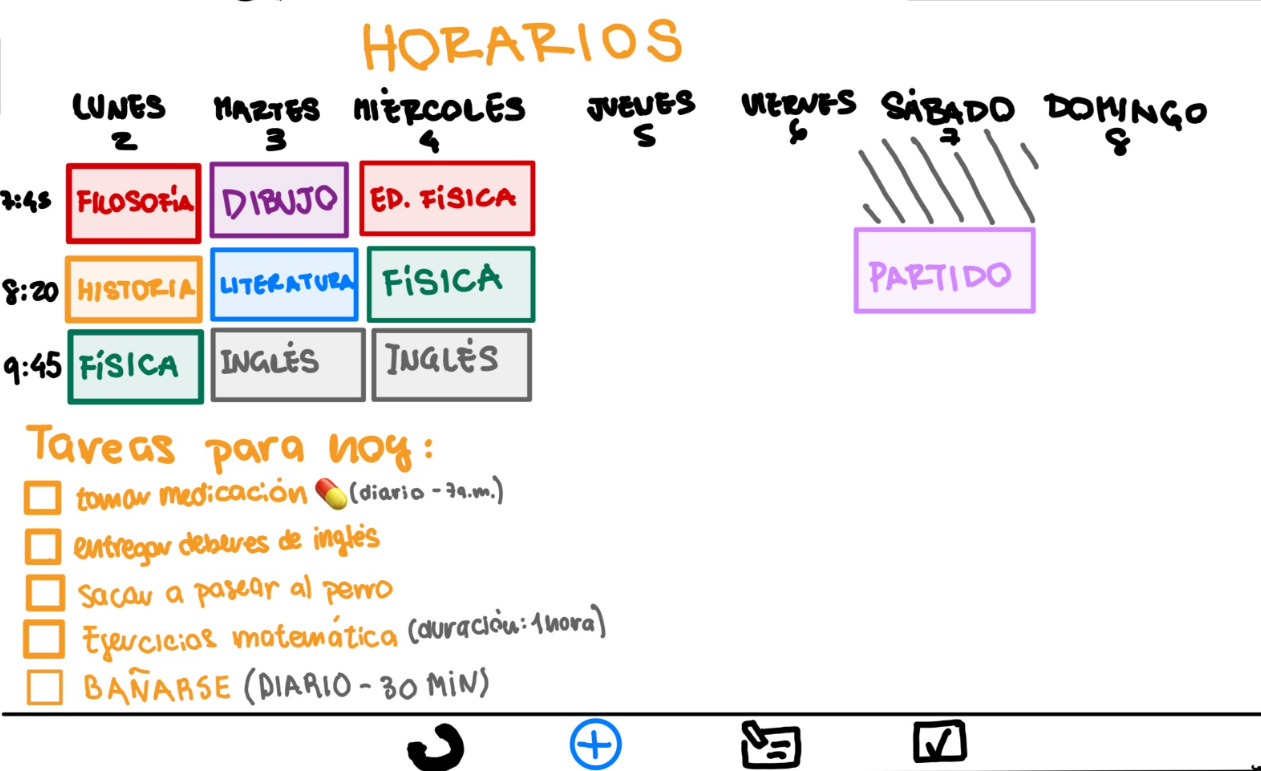 HORARIOS
LUNES MARTES MIÉRCOLES JUEVES VIERNES SÁBADO DOMINGO
2 3 4 5 6 7 8
7:45 FILOSOFÍA DIBUJO ED. FÍSICA
8:20 HISTORIA LITERATURA FÍSICA PARTIDO
9:45 FÍSICA INGLÉS INGLÉS
Tareas para hoy:
tomar medicación (diario - 7a.m.)
entregar deberes de inglés
sacar a pasear al perro
Ejercicios matemática (duración: 1 hora)
BAÑARSE (DIARIO - 30 MIN)